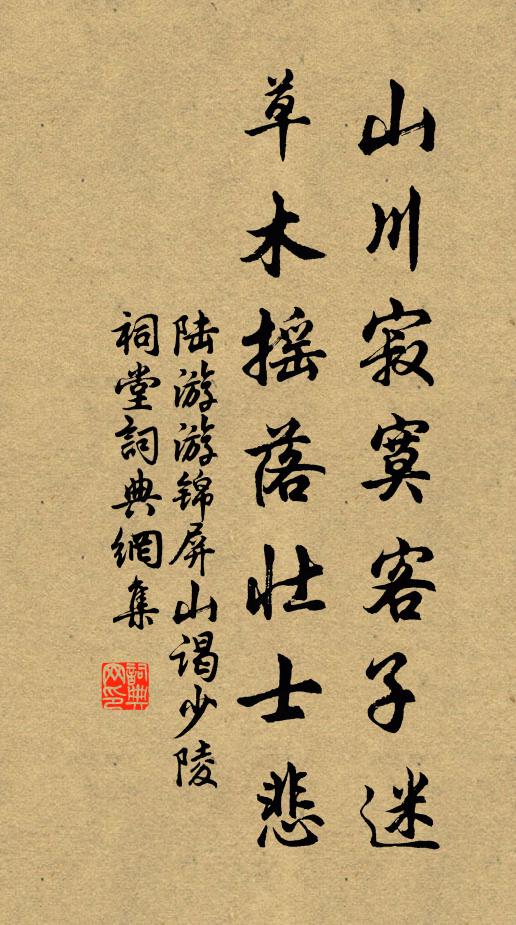 山川寂寞客子迷
草木摇落壮士悲
陆游游锦屏山谒少陵
祠堂詞典網集
詞典網印